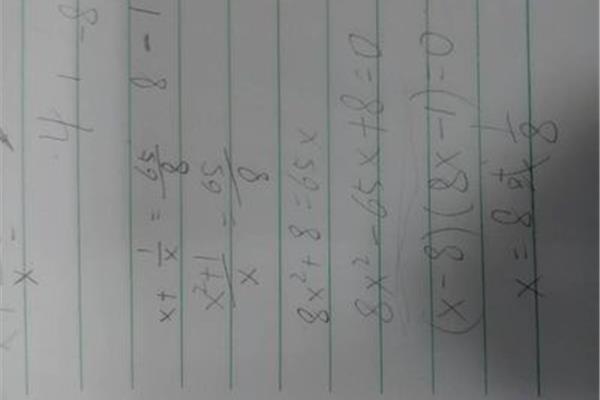 x + 1/x = 65/8
x²+1/x = 65/8
8x² + 8 = 65x
8x² - 65x + 8 = 0
(x - 8)(8x - 1) = 0
x = 8 或 1/8